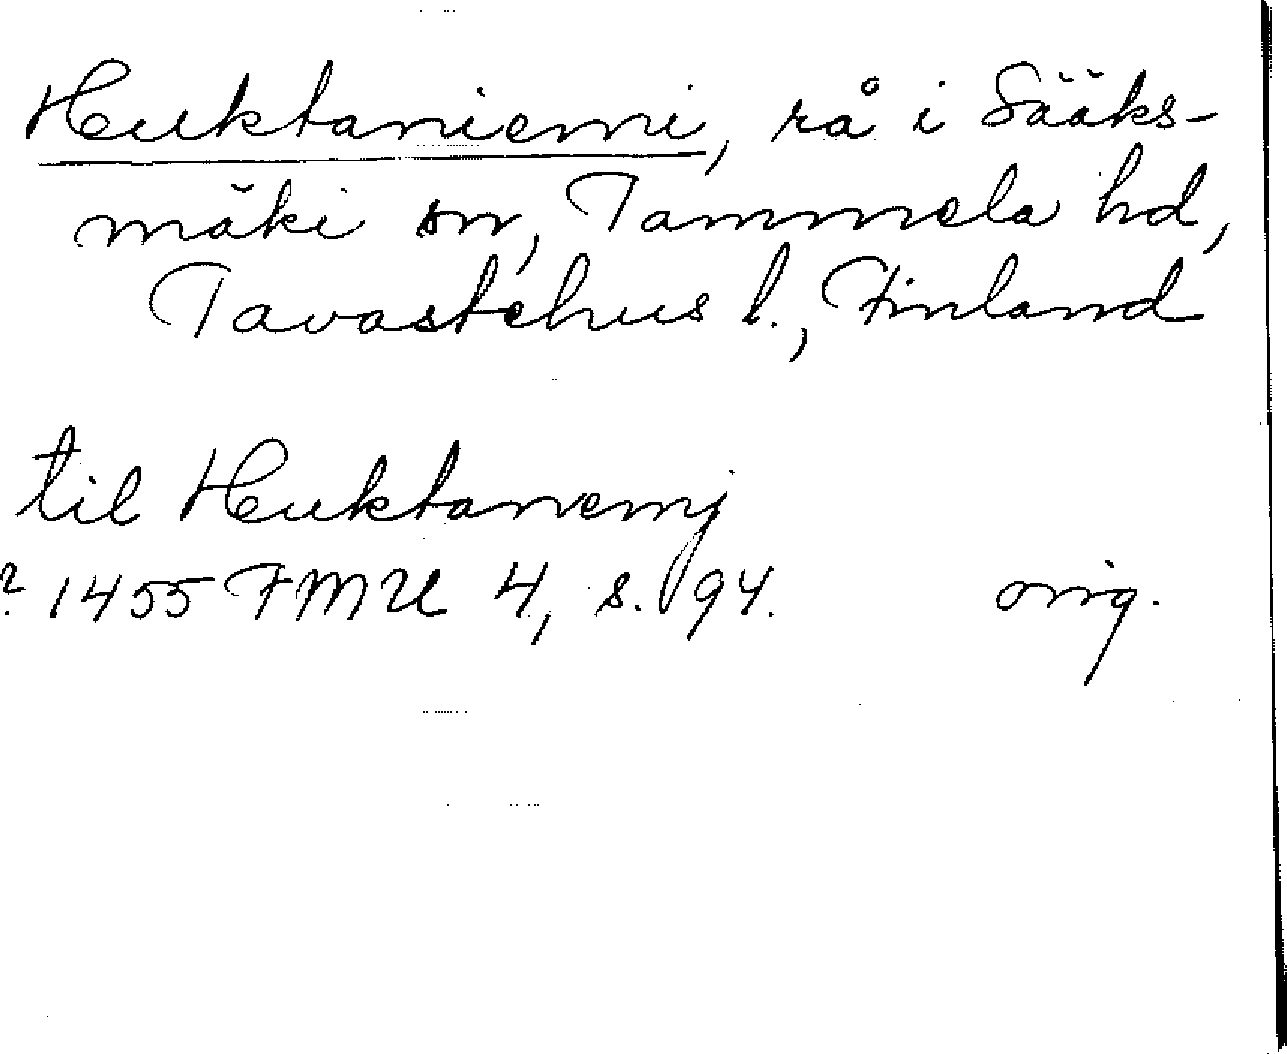 Huktaniemi, rå i Sääks-
mäki sn, Tammela hd,
Tavastehus l., Finland
til Huktanemj
? 1455 FMU 4, s. 94. orig.